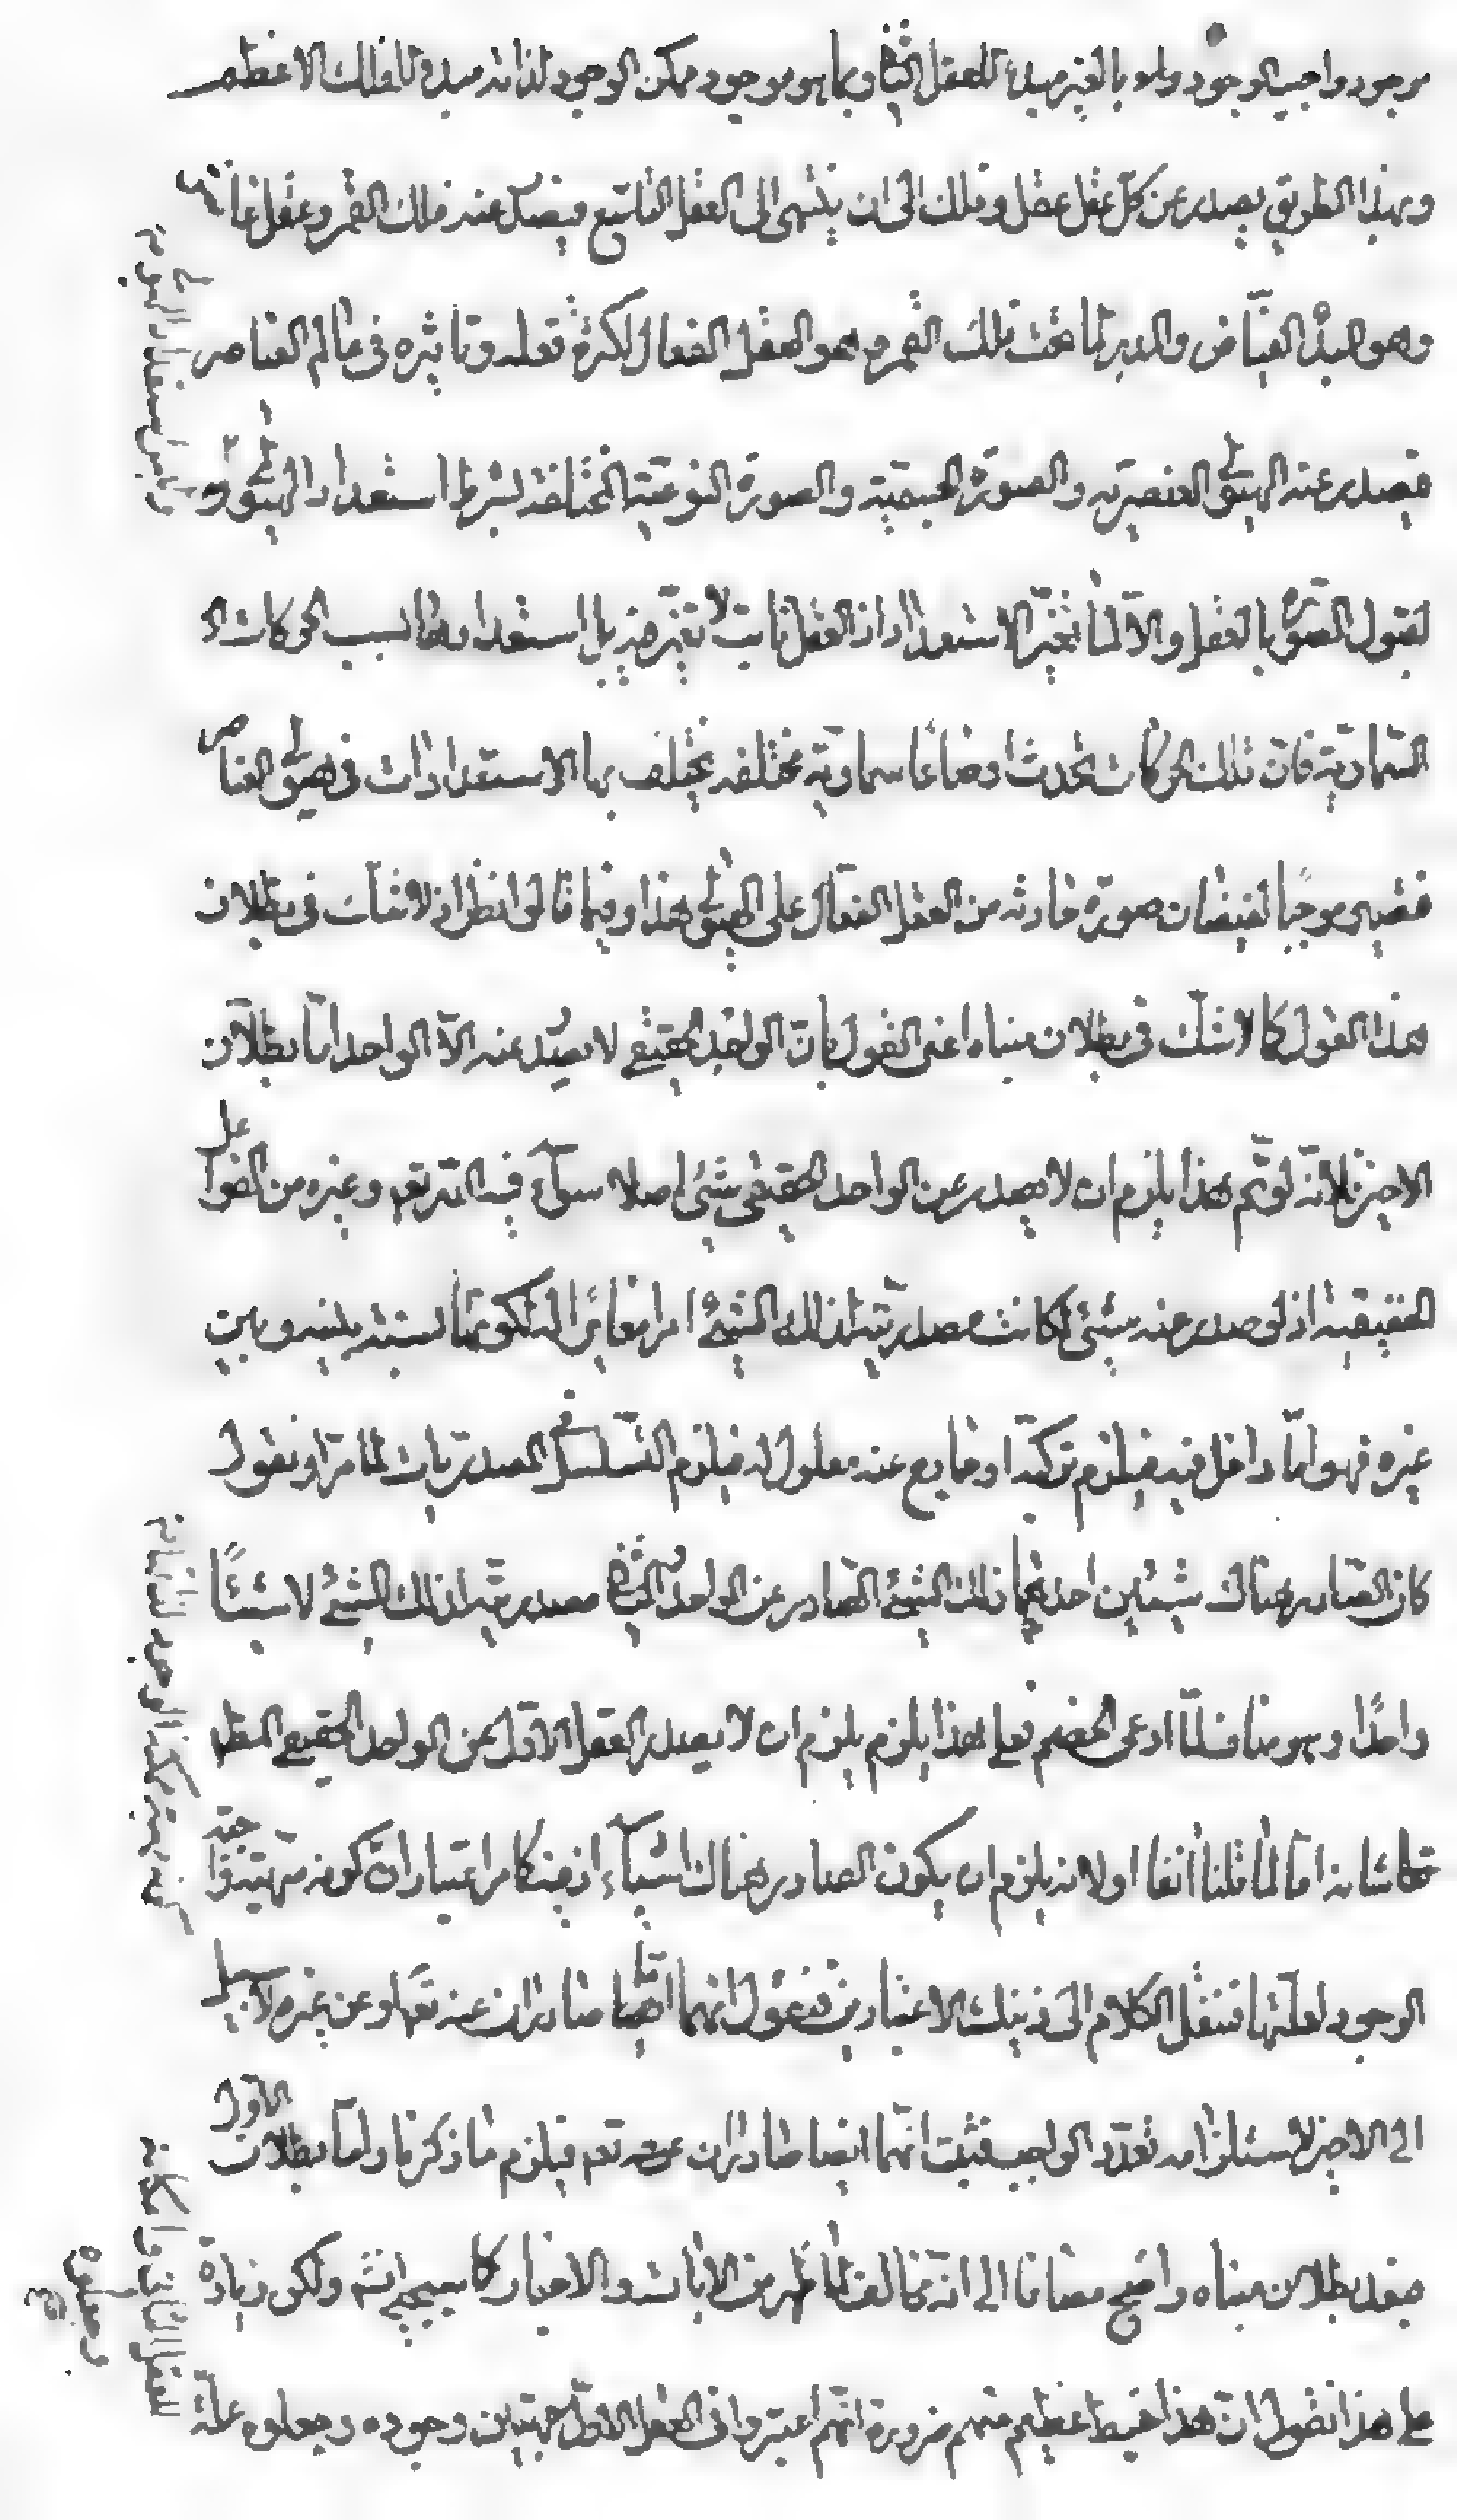 موجود واجب الوجود ولو بالغير مبدء للعقل الثاني وبما هو موجود ممكن الوجود لذاته مبدء للفلك الاعظم
وبهذا الطريق يصدر عن كل عقل عقل وفلك الى ان ينتهى الى العقل التاسع فيصدر عنه فلك القمر وعقل عاشر
وهو المبدء الفياض والمدبر لما تحت فلك القمر وهو العقل الفعال لكثرة فعله وتاثيره فى عالم العناصر
فيصدر عنه الهيولى العنصريه والصورة الجسمية والصورة النوعية المختلفة بشرط استعداد الهيولى
لقبول الصورة بالفعل والا لما تغير الاستعداد اذ العقل ثابت لا تغير فيه بل استعدادها لسبب الحركات
السماوية فان تلك الحركات تحدث اوضاعا سماوية مختلفه يختلف بها الاستعدادات فى هيولى العناصر
فتصير موجبا لفيضان صورة حادثه من العقل الفعال على الهيولى هذا وفيما قالوا نظر اذ لا شك فى بطلان
هذا القول كما لا شك فى بطلان مبناه اعنى القول بان الواحد الحقيقى لا يصدر عنه الا الواحد اما بطلان
الاخير فلانه لو تم هذا يلزم ان لا يصدر عن الواحد الحقيقى شئ اصلا سوآء فيه القديم وغيره من الفواعل
الحقيقية اذ لو صدر عنه شئ لكانت مصدريته لذلك الشئ امرا مغايرا لذلك لكونها نسبته بينه وبين
غيره فهو اما داخل فيه فيلزم تركبه او خارج عنه معلول له فيلزم التسلسل فى المصدريات لما مر او نقول
كان الصادر هناك شيئين احدهما ذلك الشئ الصادر عن الواحد والثانى مصدريته لذلك الشئ لا شيئا
واحدا وهو مناف لما ادعى الخصم فعلى هذا يلزم يلزم ان لا يصدر العقل الاول عن الواحد الحقيقى المتعال
تعالى شانه اما لما قلنا انفا اولا نه يلزم ان يكون الصادر هناك اشيآء اذ فيه كما مر اعتباران كونه مهية وواجد
الوجود لعلتها فننقل الكلام الى ذينك الاعتبارين فنقول انهما ايضا اما صادران عنه تعالى او عن غيره لا سبيل
الى الاخير لاستلزامه تعدد الواجب فثبت انهما ايضا صادران عنه تعالى فيلزم ما ذكرنا واما بطلان الاول
فبعد بطلان مبناه واضح مضافا الى انه مخالف لما ظهر من الايات والاخبار كما سيجئ انشه ولكن زيادة
على هذا نقول ان هذا خبط عظيم منهم ضرورة انهم اعتبروا فى العقل الاول جهتين وجوده وجعلوه علة
للعقل الثانى وامكانه
وجعلوه